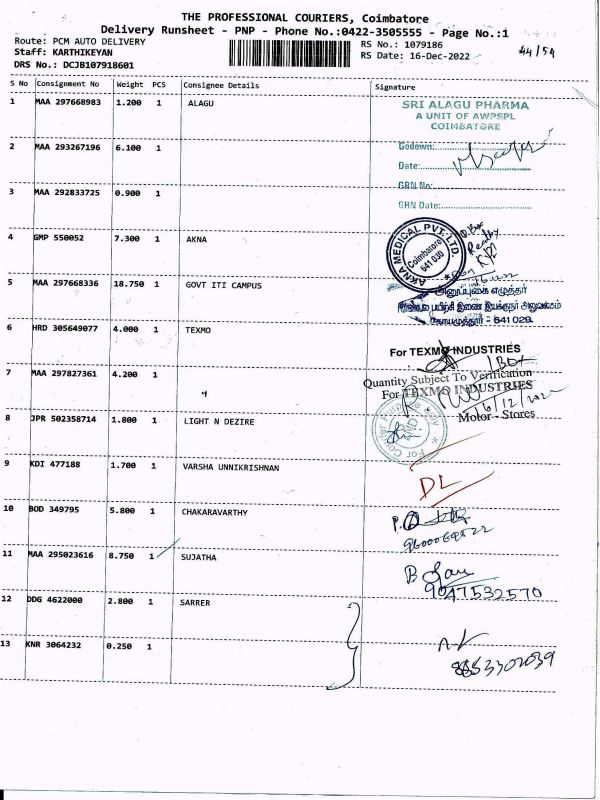 THE PROFESSIONAL COURIERS, Coimbatore
Delivery Runsheet - PNP - Phone No.:0422-3505555 - Page No.:1
Route: PCM AUTO DELIVERY RS No.: 1079186 44/54
Staff: KARTHIKEYAN RS Date: 16-Dec-2022
DRS No.: DCJB107918601
S No Consignment No Weight PCS Consignee Details Signature
1 MAA 297668983 1.200 1 ALAGU
SRI ALAGU PHARMA
A UNIT OF AWPSPL
COIMBATORE
2 MAA 293267196 6.100 1
Godown:
Date:
3 MAA 292833725 0.900 1
GRN No:
GRN Date:
4 GMP 550052 7.300 1 AKNA
AKNA MEDICAL PVT. LTD.
Coimbatore
641 030
5 MAA 297668336 18.750 1 GOVT ITI CAMPUS
அலுவலகம்
கோயமுத்தூர் - 641 029.
6 HRD 305649077 4.000 1 TEXMO
For TEXMO INDUSTRIES
1 Box
7 MAA 297827361 4.200 1
Quantity Subject To Verification
For TEXMO INDUSTRIES
16/12/2022
Motor - Stores
8 JPR 502358714 1.800 1 LIGHT N DEZIRE
For Courier Purpose Only
9 KDI 477188 1.700 1 VARSHA UNNIKRISHNAN
DL
10 BOD 349795 5.800 1 CHAKARAVARTHY
11 MAA 295023616 8.750 1 SUJATHA
9047532570
12 DDG 4622000 2.800 1 SARRER
13 KNR 3064232 0.250 1
8853302039